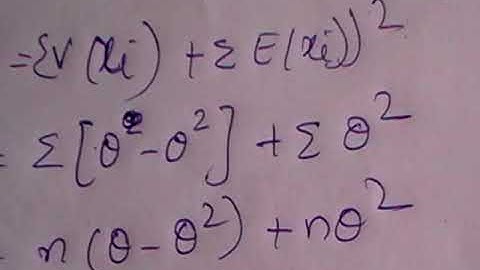 = Σ V(xi) + Σ E(xi))²
= Σ [θ - θ²] + Σ θ²
= n (θ - θ²) + nθ²